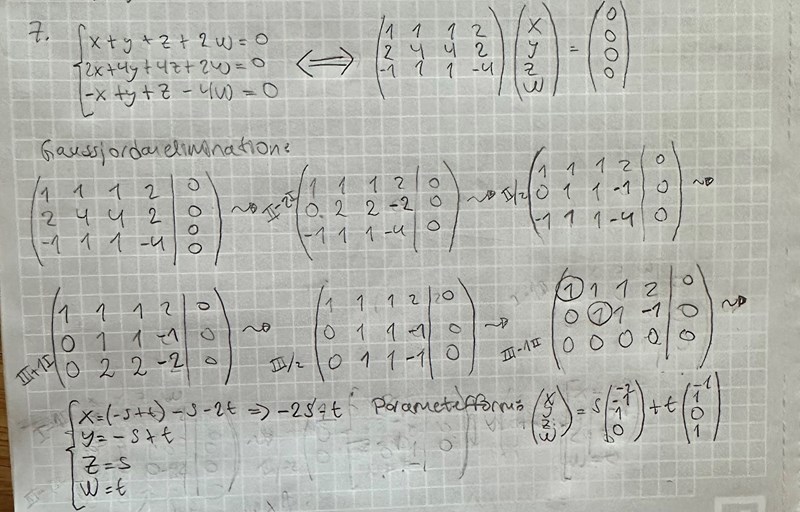 7. { x + y + z + 2w = 0
2x + 4y + 4z + 2w = 0
-x + y + z - 4w = 0
⟺ (1 1 1 2; 2 4 4 2; -1 1 1 -4) (x; y; z; w) = (0; 0; 0; 0)
Gaussjordanelimination:
(1 1 1 2 | 0; 2 4 4 2 | 0; -1 1 1 -4 | 0; 0) ⇝ II-2I (1 1 1 2 | 0; 0 2 2 -2 | 0; -1 1 1 -4 | 0) ⇝ II/2 (1 1 1 2 | 0; 0 1 1 -1 | 0; -1 1 1 -4 | 0) ⇝
III+1I (1 1 1 2 | 0; 0 1 1 -1 | 0; 0 2 2 -2 | 0) ⇝ III/2 (1 1 1 2 | 0; 0 1 1 -1 | 0; 0 1 1 -1 | 0) ⇝ III-1II (1 1 1 2 | 0; 0 1 1 -1 | 0; 0 0 0 0 | 0) ⇝
{ x = (-s+t) - s - 2t ⇒ -2s+t Parameterform: (x; y; z; w) = s(-2; -1; 1; 0) + t(-1; 1; 0; 1)
y = -s + t
z = s
w = t